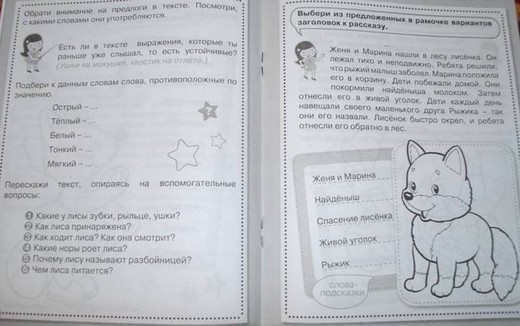 Обрати внимание на предлоги в тексте. Посмотри,
с какими словами они употребляются.
Есть ли в тексте выражения, которые ты
раньше уже слышал, то есть устойчивые?
(Ушки на макушке, хвостик на отлёте.)
Подбери к данным словам слова, противоположные по
значению.
Острый – ...
Тёплый – ...
Белый – ...
Тонкий – ...
Мягкий – ...
Перескажи текст, опираясь на вспомогательные
вопросы:
1 Какие у лисы зубки, рыльце, ушки?
2 Как лиса принаряжена?
3 Как ходит лиса? Как она смотрит?
4 Какие норы роет лиса?
5 Почему лису называют разбойницей?
6 Чем лиса питается?
Выбери из предложенных в рамочке вариантов
заголовок к рассказу.
Женя и Марина нашли в лесу лисёнка. Он
лежал тихо и неподвижно. Ребята решили,
что рыжий малыш заболел. Марина положила
его в корзину. Дети побежали домой. Они
покормили найдёныша молоком. Затем
отнесли его в живой уголок. Дети каждый день
навещали своего маленького друга Рыжика – так
они его назвали. Лисёнок быстро окреп, и ребята
отнесли его обратно в лес.
Женя и Марина
Найдёныш
Спасение лисёнка
Живой уголок
Рыжик
слова-
подсказки